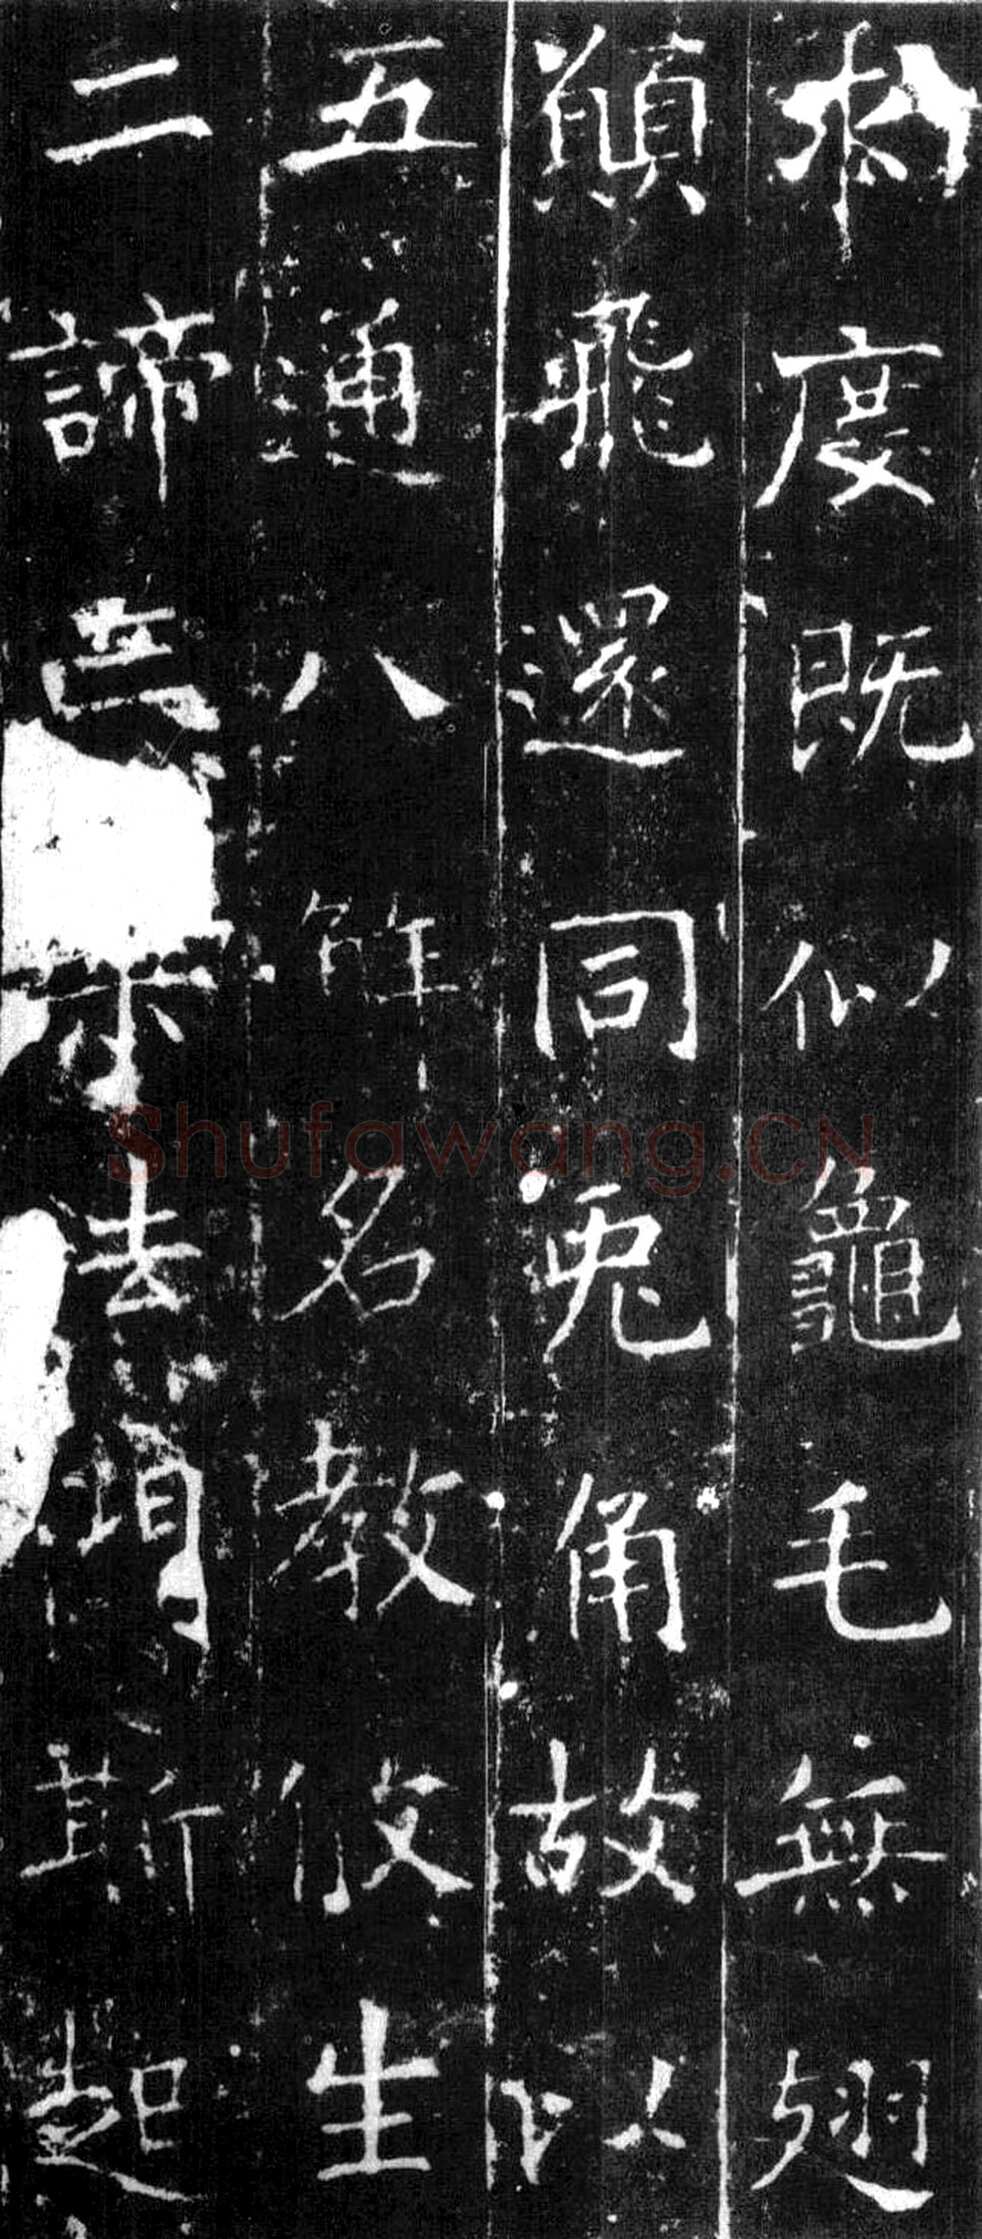 度既似龜毛無翅
願飛還同兔角故以
五通八解名教攸生
二諦
去
斯起
Shufawang.CN